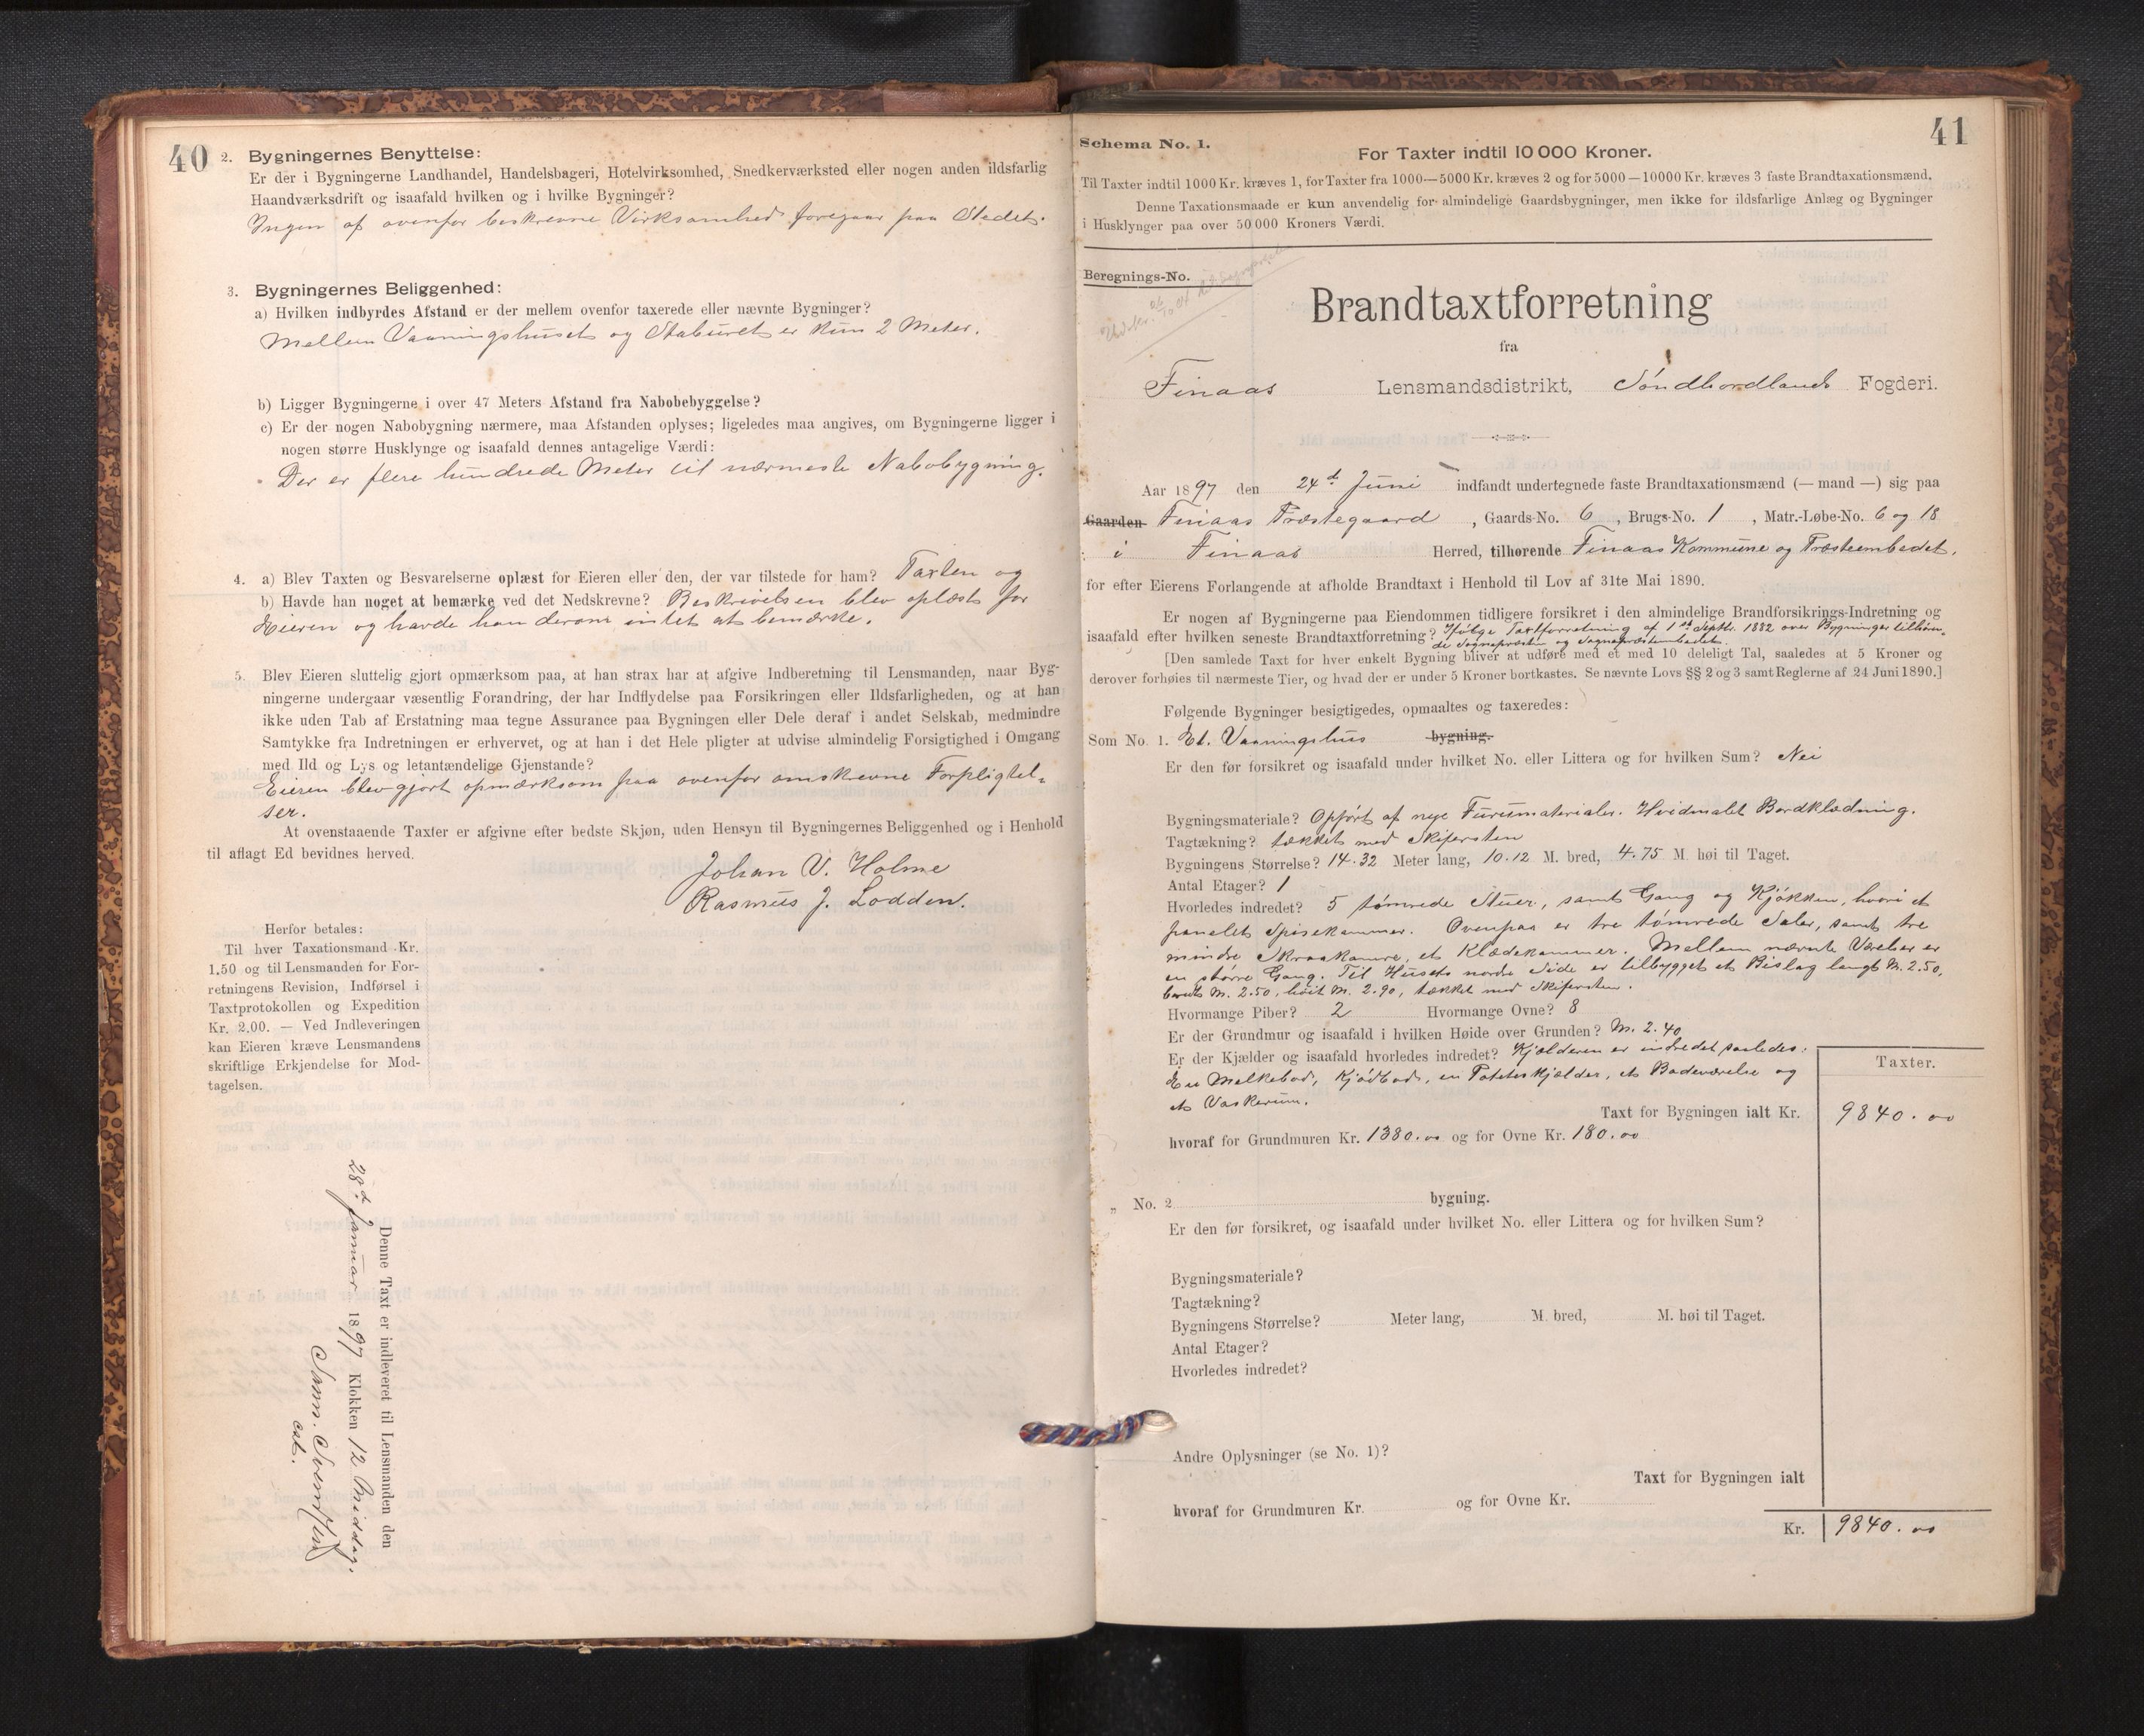 40
2. Bygningernes Benyttelse:
Er der i Bygningerne Landhandel, Handelsbageri, Hotelvirksomhed, Snedkerværksted eller nogen anden ildsfarlig
Haandværksdrift og isaafald hvilken og i hvilke Bygninger?
Ingen af ovenfor beskrevne Virksomhed foregaar paa Stedet.
3. Bygningernes Beliggenhed:
a) Hvilken indbyrdes Afstand er der mellem ovenfor taxerede eller nævnte Bygninger?
Mellem Vaaningshuset og Staburet er kun 2 Meter.
b) Ligger Bygningerne i over 47 Meters Afstand fra Nabobebyggelse?
c) Er der nogen Nabobygning nærmere, maa Afstanden oplyses; ligeledes maa angives, om Bygningerne ligger i
nogen større Husklynge og isaafald dennes antagelige Værdi:
Der er flere hundrede Meter til nærmeste Nabobygning.
4. a) Blev Taxten og Besvarelserne oplæst for Eieren eller den, der var tilstede for ham? Taxten og
b) Havde han noget at bemærke ved det Nedskrevne? Beskrivelsen blev oplæst for
Eieren og havde han derom intet at bemærke.
5. Blev Eieren sluttelig gjort opmærksom paa, at han strax har at afgive Indberetning til Lensmanden, naar Byg-
ningerne undergaar væsentlig Forandring, der har Indflydelse paa Forsikringen eller Ildsfarligheden, og at han
ikke uden Tab af Erstatning maa tegne Assurance paa Bygningen eller Dele deraf i andet Selskab, medmindre
Samtykke fra Indretningen er erhvervet, og at han i det Hele pligter at udvise almindelig Forsigtighed i Omgang
med Ild og Lys og letantændelige Gjenstande?
Eieren blev gjort opmærksom paa ovenfor omskrevne Forpligtel-
ser.
At ovenstaaende Taxter er afgivne efter bedste Skjøn, uden Hensyn til Bygningernes Beliggenhed og i Henhold
til aflagt Ed bevidnes herved.
Johan V. Holme
Rasmus J. Lodden.
Herfor betales:
Til hver Taxationsmand Kr.
1.50 og til Lensmanden for For-
retningens Revision, Indførsel i
Taxtprotokollen og Expedition
Kr. 2.00. — Ved Indleveringen
kan Eieren kræve Lensmandens
skriftlige Erkjendelse for Mod-
tagelsen.
Denne Taxt er indleveret til Lensmanden den
28d Januar 1897 Klokken 12 Middag.
cst.
41
Schema No. 1.
For Taxter indtil 10 000 Kroner.
Til Taxter indtil 1000 Kr. kræves 1, for Taxter fra 1000—5000 Kr. kræves 2 og for 5000—10000 Kr. kræves 3 faste Brandtaxationsmænd.
Denne Taxationsmaade er kun anvendelig for almindelige Gaardsbygninger, men ikke for ildsfarlige Anlæg og Bygninger
i Husklynger paa over 50 000 Kroners Værdi.
Beregnings-No.
Brandtaxtforretning
fra
Finaas Lensmandsdistrikt, Søndhordlands Fogderi.
Aar 1897 den 24d Juni indfandt undertegnede faste Brandtaxationsmænd (— mand —) sig paa
Gaarden Finaas Præstegaard, Gaards-No. 6, Brugs-No. 1, Matr.-Løbe-No. 6 og 18
i Finaas Herred, tilhørende Finaas Kommune og Præsteembedet.
for efter Eierens Forlangende at afholde Brandtaxt i Henhold til Lov af 31te Mai 1890.
Er nogen af Bygningerne paa Eiendommen tidligere forsikret i den almindelige Brandforsikrings-Indretning og
isaafald efter hvilken seneste Brandtaxtforretning? Ifølge Taxtforretning af 1ste Septbr. 1882 over Bygninger tilhøren-
de Sognepræsten og Sognepræstembedet.
[Den samlede Taxt for hver enkelt Bygning bliver at udføre med et med 10 deleligt Tal, saaledes at 5 Kroner og
derover forhøies til nærmeste Tier, og hvad der er under 5 Kroner bortkastes. Se nævnte Lovs §§ 2 og 3 samt Reglerne af 24 Juni 1890.]
Følgende Bygninger besigtigedes, opmaaltes og taxeredes:
Som No. 1. Et. Vaaningshus bygning.
Er den før forsikret og isaafald under hvilket No. eller Littera og for hvilken Sum? Nei
Bygningsmateriale? Opført af nye Furumaterialer. Hvidmalet Bordklædning.
Tagtækning? tækket med Skifersten
Bygningens Størrelse? 14.32 Meter lang, 10.12 M. bred, 4.75 M. høi til Taget.
Antal Etager? 1
Hvorledes indredet? 5 tømrede Stuer, samt Gang og Kjøkken, hvori et
panelet Spisekammer. Ovenpaa er tre tømrede Saler, samt tre
mindre Skraakamre, et Klædekammer. Mellem nævnte Værelser er
en større Gang. Til Husets nordre Side er tilbygget et Bislag langt M. 2.50,
bredt M. 2.50, høit M. 2.90, tækket med Skifersten.
Hvormange Piber? 2 Hvormange Ovne? 8
Er der Grundmur og isaafald i hvilken Høide over Grunden? M. 2.40
Er der Kjælder og isaafald hvorledes indredet? Kjælderen er indredet saaledes:
En Melkebod, Kjødbod, en Poteteskjælder, et Badeværelse og
et Vaskerum.
Taxter.
Taxt for Bygningen ialt Kr. 9840.00
hvoraf for Grundmuren Kr. 1380.00 og for Ovne Kr. 180.00
„ No. 2 bygning.
Er den før forsikret, og isaafald under hvilket No. eller Littera og for hvilken Sum?
Bygningsmateriale?
Tagtækning?
Bygningens Størrelse? Meter lang, M. bred, M. høi til Taget.
Antal Etager?
Hvorledes indredet?
Andre Oplysninger (se No. 1)?
Taxt for Bygningen ialt
hvoraf for Grundmuren Kr. og for Ovne Kr.
Kr. 9840.00